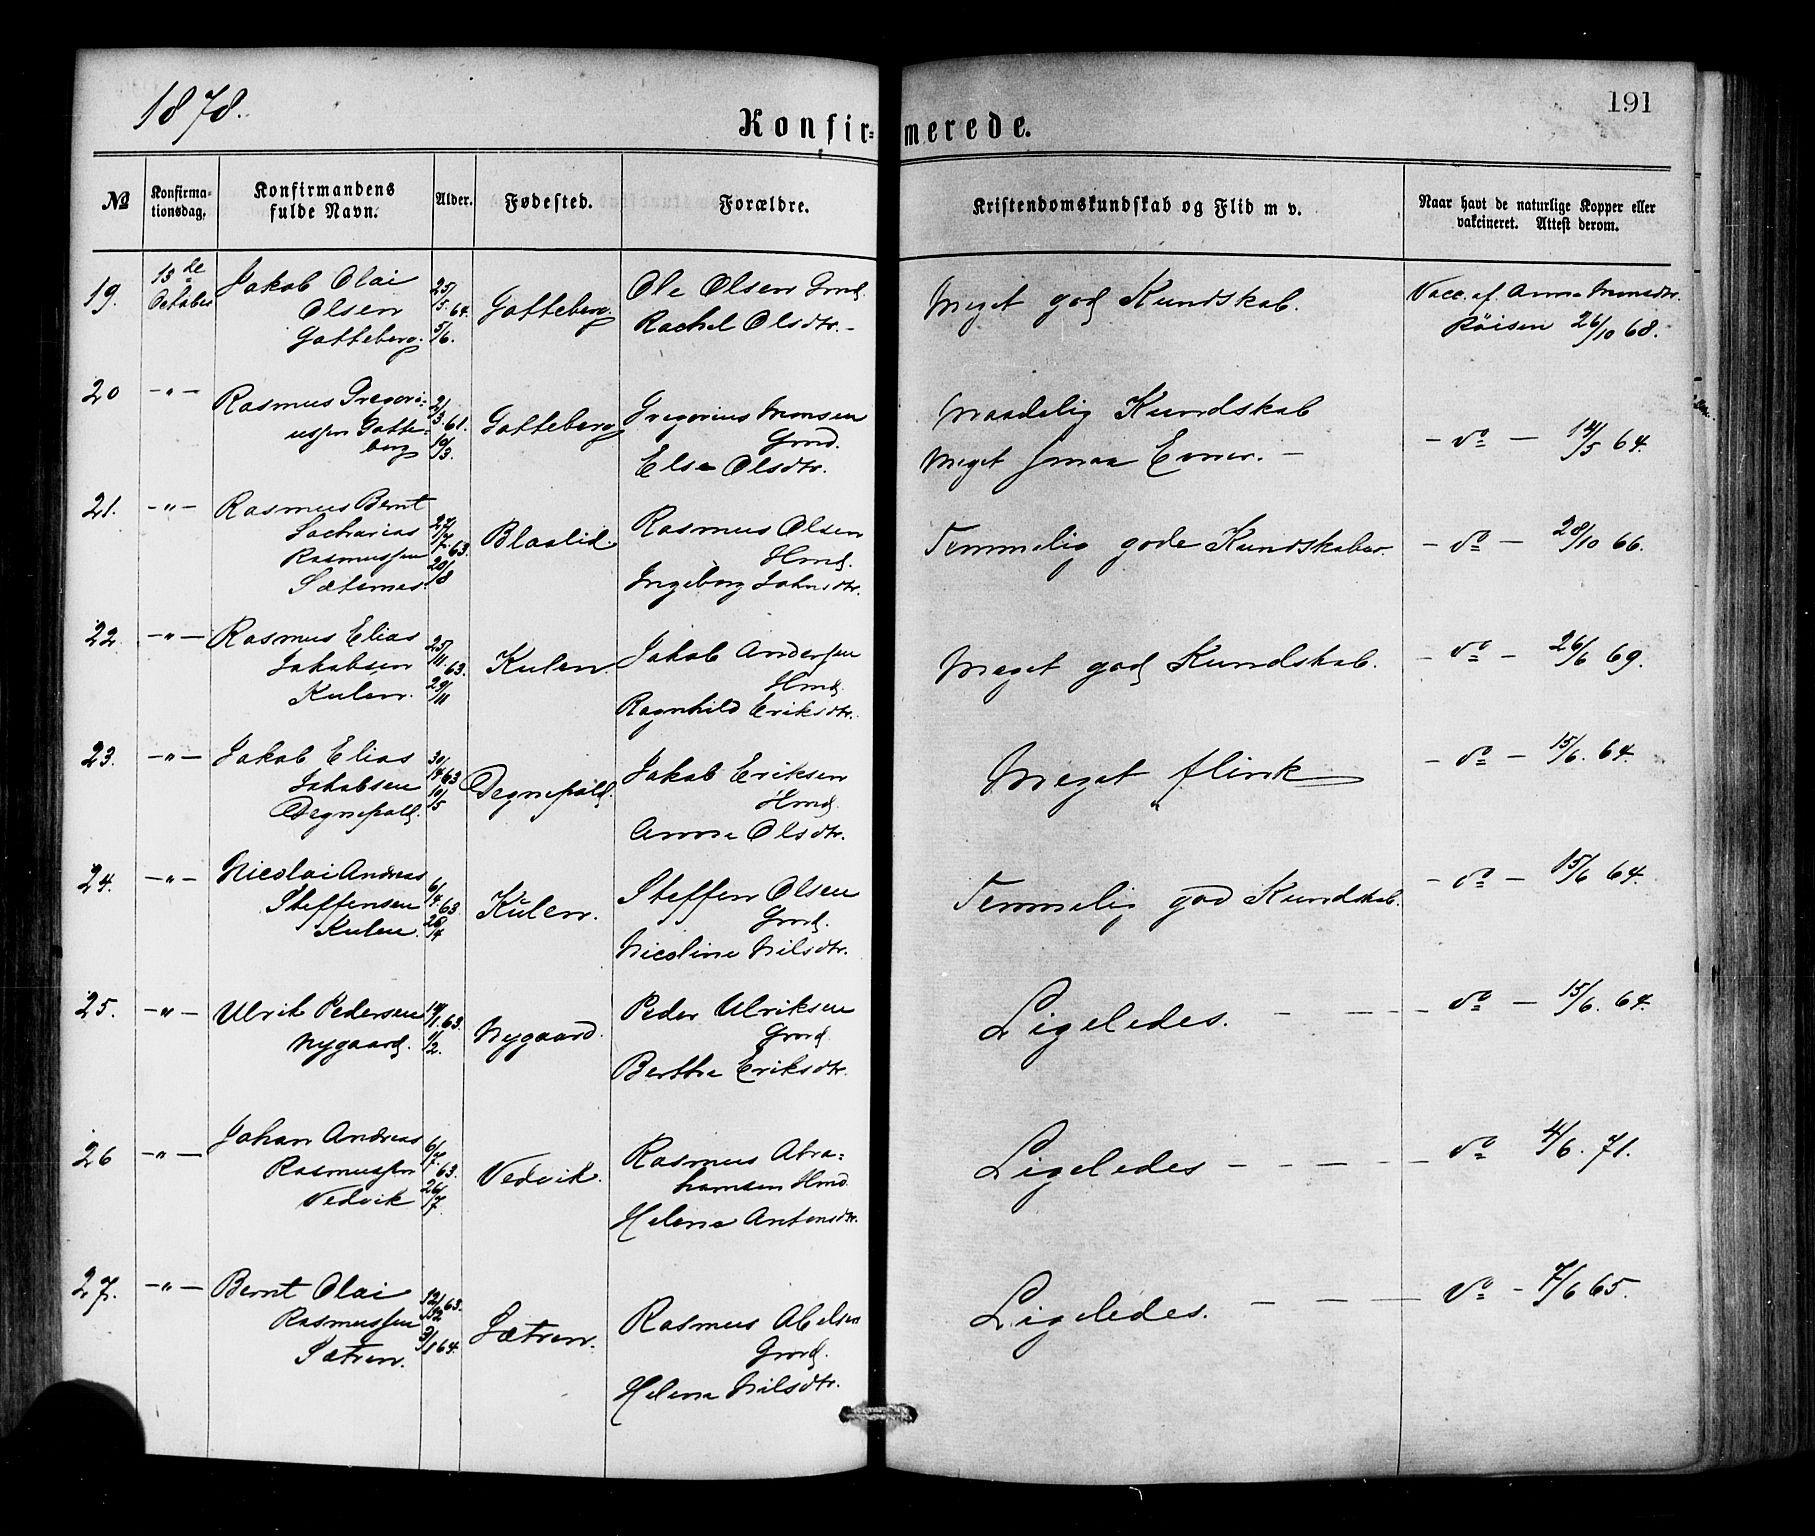 1878.
191
Konfir=merede.
№
Konfirma=
tionsdag.
Konfirmandens
fulde Navn.
Alder.
Fødested.
Forældre.
Kristendomskundskab og Flid m v.
Naar havt de naturlige Kopper eller
vakcineret. Attest derom.
19. 13de Jakob Olai 25/5 64. Gotteberg. Ole Olsen Gmd. Meget god Kundskab. Vacc. af Anna Monsdtr.
October Olsen 5/6. Rachel Olsdtr. Röisen 26/10 68.
Gotteberg.
20 —"— Rasmus Gregori= 2/3. 61. Gotteberg Gregorius Monsen Maadelig Kundskab
ussen Gotte= 10/3. Gmd. Meget smaa Evner. — do — 14/5 64.
berg Else Olsdtr.
21. —"— Rasmus Bernt 27/7. 63. Blaalid Rasmus Olsen Temmelig gode Kundskaber. — do — 28/10 66.
Zacharias Hmd.
Rasmussen 20/8 Ingeborg Johnsdtr.
Sæternes.
22. —"— Rasmus Elias 25/11 63. Kulen. Jakob Andersen Meget god Kundskab. — do — 26/6 69.
Jakobsen Hmd.
Kulen. 29/11 Ragnhild Eriksdtr.
23. —"— Jakob Elias 30/4 63 Degnepold. Jakob Eriksen Meget flink — do — 15/6. 64.
Jakobsen 10/5 Hmd.
Degnepold. Anna Olsdtr.
24. —"— Nicolai Andreas 6/4 63 Kulen. Steffen Olsen Temmelig god Kundskab. — do — 15/6 64.
Steffensen Gmd.
Kulen. 26/4 Nicoline Nilsdtr.
25. —"— Ulrik Pedersen 14/1. 63. Nygaard. Peder Ulriksen Ligeledes. — do — 15/6. 64.
Nygaard. 1/2. Gmd.
Berthe Eriksdtr.
26 —"— Johan Andreas 6/7 63. Vedvik. Rasmus Abra= Ligeledes — do 4/6. 71.
Rasmussen hamsen Hmd.
Vedvik 26/7. Helena Antonsdtr.
27. —"— Bernt Olai 12/12 63. Sætren. Rasmus Abelsen Ligeledes. — do — 7/6 65.
Rasmussen 3/1 64. Gmd.
Sætren. Helene Nilsdtr.